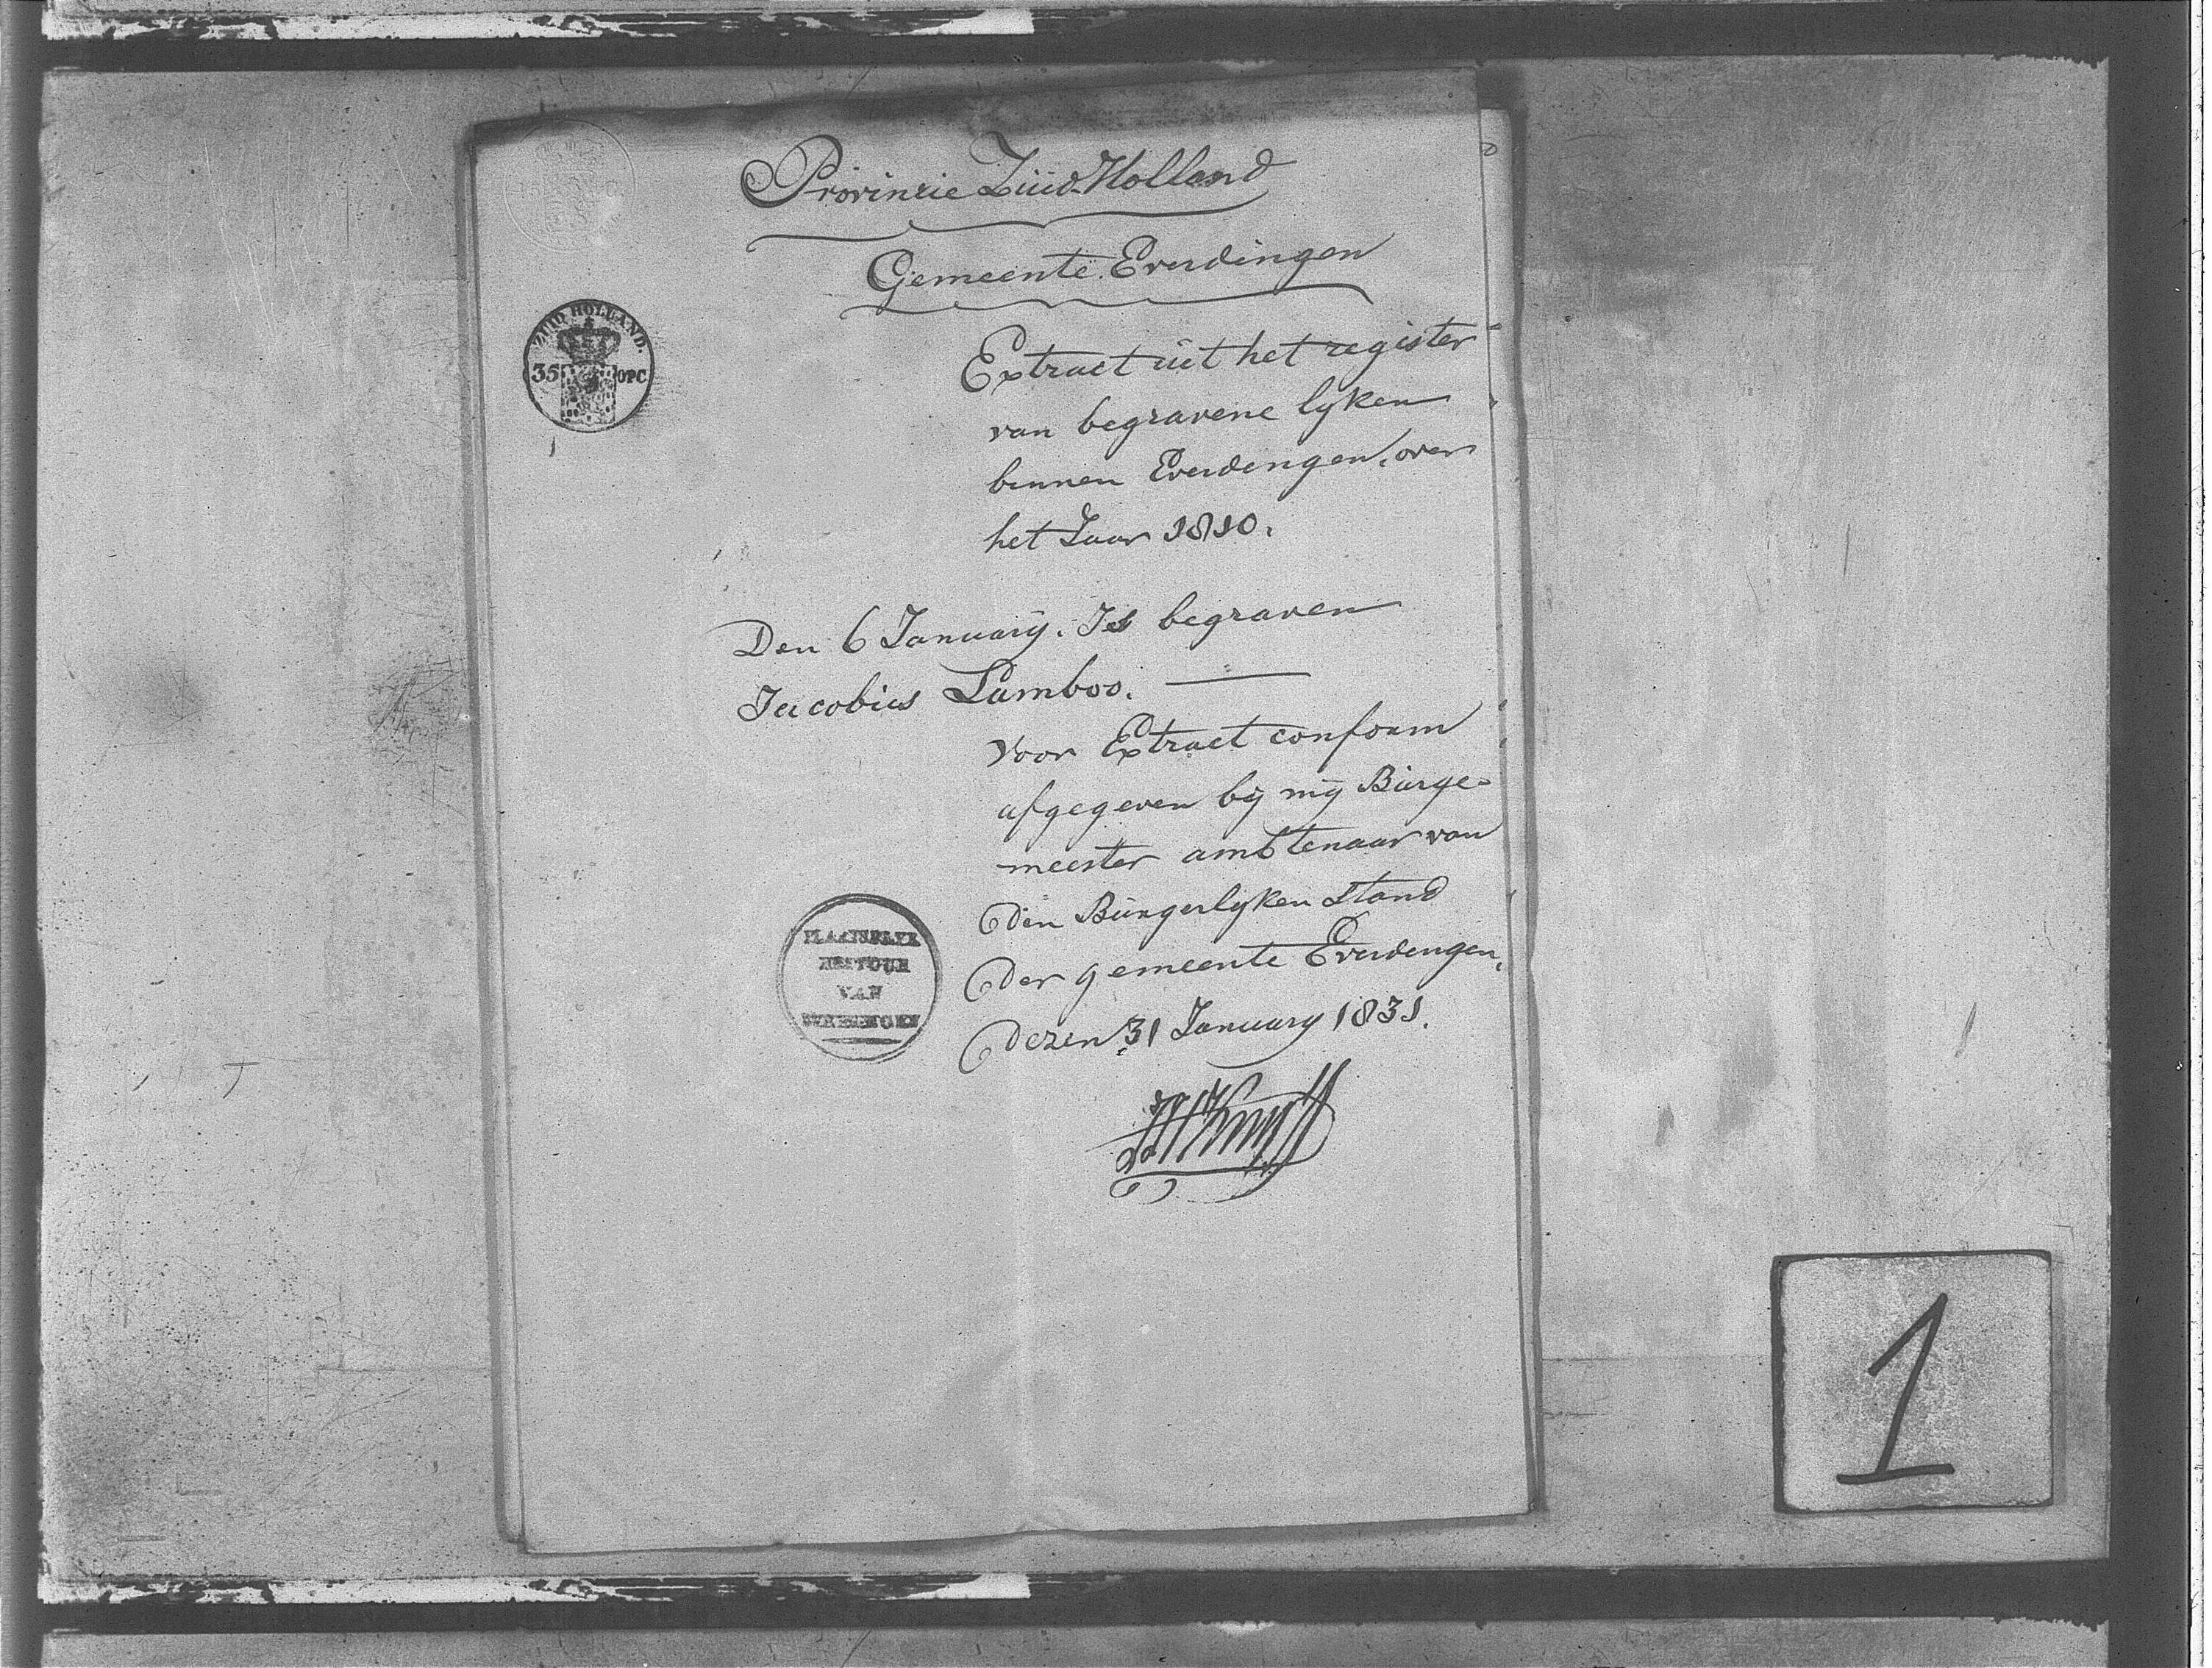 Provincie Zuid-Holland
Gemeente Everdingen
ZUID HOLLAND.
35 OPC
Extract uit het register
van begravene lyken
binnen Everdingen, over
het Jaar 1810.
Den 6 January. Is begraven
Jacobus Lamboo.
Voor Extract conform
afgegeven bij mij Burge-
meester ambtenaar van
den Burgerlyken Stand
PLAATSELYK
BESTUUR
VAN
der gemeente Everdingen,
dezen 31 January 1831.
1